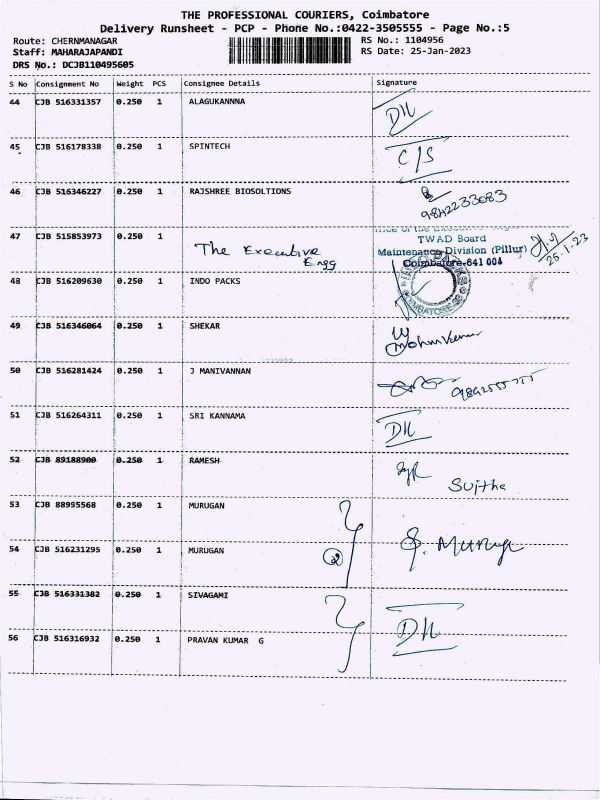 THE PROFESSIONAL COURIERS, Coimbatore
Delivery Runsheet - PCP - Phone No.:0422-3505555 - Page No.:5
Route: CHERNMANAGAR RS No.: 1104956
Staff: MAHARAJAPANDI RS Date: 25-Jan-2023
DRS No.: DCJB110495605
S No Consignment No Weight PCS Consignee Details Signature
44 CJB 516331357 0.250 1 ALAGUKANNNA DH
45 CJB 516178338 0.250 1 SPINTECH C/S
46 CJB 516346227 0.250 1 RAJSHREE BIOSOLTIONS 9842233083
47 CJB 515853973 0.250 1 The Executive Engg
TWAD Board
Maintenance Division (Pillur)
Coimbatore-641 004
25.1.23
48 CJB 516209630 0.250 1 INDO PACKS
49 CJB 516346064 0.250 1 SHEKAR
50 CJB 516281424 0.250 1 J MANIVANNAN
51 CJB 516264311 0.250 1 SRI KANNAMA DH
52 CJB 89188900 0.250 1 RAMESH Sujitha
53 CJB 88995568 0.250 1 MURUGAN
54 CJB 516231295 0.250 1 MURUGAN 2
55 CJB 516331382 0.250 1 SIVAGAMI
56 CJB 516316932 0.250 1 PRAVAN KUMAR G DH